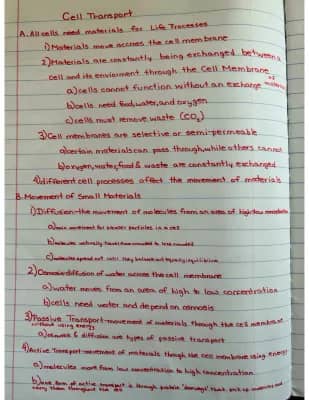 Cell Transport
A. All cells need materials for Life Processes
1) Materials move accross the cell membrane
2) Materials are constantly being exchanged between a
cell and its enviorment through the Cell Membrane
a) cells cannot function without an exchange of materials
b) cells need food, water, and oxygen
c) cells must remove waste (CO2)
3) Cell membranes are selective or semi-permeable
a) certain materials can pass through, while others cannot
b) oxygen, water, food & waste are constantly exchanged
4) different cell processes affect the movement of materials
B. Movement of Small Materials
1) Diffusion-the movement of molecules from an area of high-low concentration
a) main movement for smaller particles in a cell
b) molecules naturally travel from crowded to less crowded
c) molecules spread out until they balance out equally; equilibrium
2) Osmosis-diffusion of water across the cell membrane
a) water moves from an area of high to low concentration
b) cells need water and depend on osmosis
3) Passive Transport-movement of materials through the cell membrane
without using energy
a) osmosis & diffusion are types of passive transport
4) Active Transport-movement of materials though the cell membrane using energy
a) molecules move from low concentration to high concentration
b) one form of active transport is through protein "doorways" that pick up materials and
carry them throughout the cell